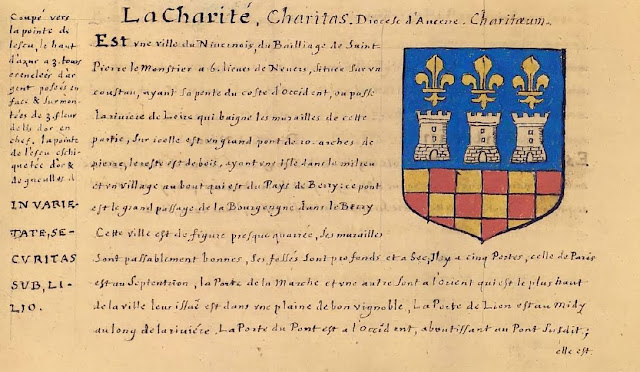 La Charité, Charitas. Diocese d'Auxerre. Charitæum.
Coupé vers
la pointe de
lescu, le haut
d'azur a 3. tours
crenelées d'ar
gent posées en
face & surmon-
tées de 3. fleur
de lis d'or en
chef. la pointe
de l'escu eschi-
quetée d'or &
de gueulles.
IN VARIE-
TATE, SE-
CURITAS
SUB, LI-
LIO.
Est vne ville du Nivernois, du Bailliage de Saint
Pierre le Monstier a 6. lieues de Nevers, située sur vn
coustau, ayant sa pente du coste d'Occident, ou passe
la riviere de Loire qui baigne les murailles de cette
partie, sur icelle est vn grand pont de 10. arches de
pierre, le reste est de bois, ayant vne Isle dans le milieu
et vn village au bout qui est du Pays de Berry: ce pont
est le grand passage de la Bourgongne dans le Berry
Cette ville est de figure presque quarrée, ses murailles
sont passablement bonnes, ses fossés sont profonds et a sec, Il y a cinq Portes, celle de Paris
est au Septentrion, la Porte de la Marche et vne autre sont a l'Orient qui est le plus haut
de la ville leur issuë est dans vne plaine de bon vignoble, La Porte de Lion est au Midy
au long de la riviére. La Porte du Pont est a l'Occident, aboutissant au Pont Susdit;
elle est.